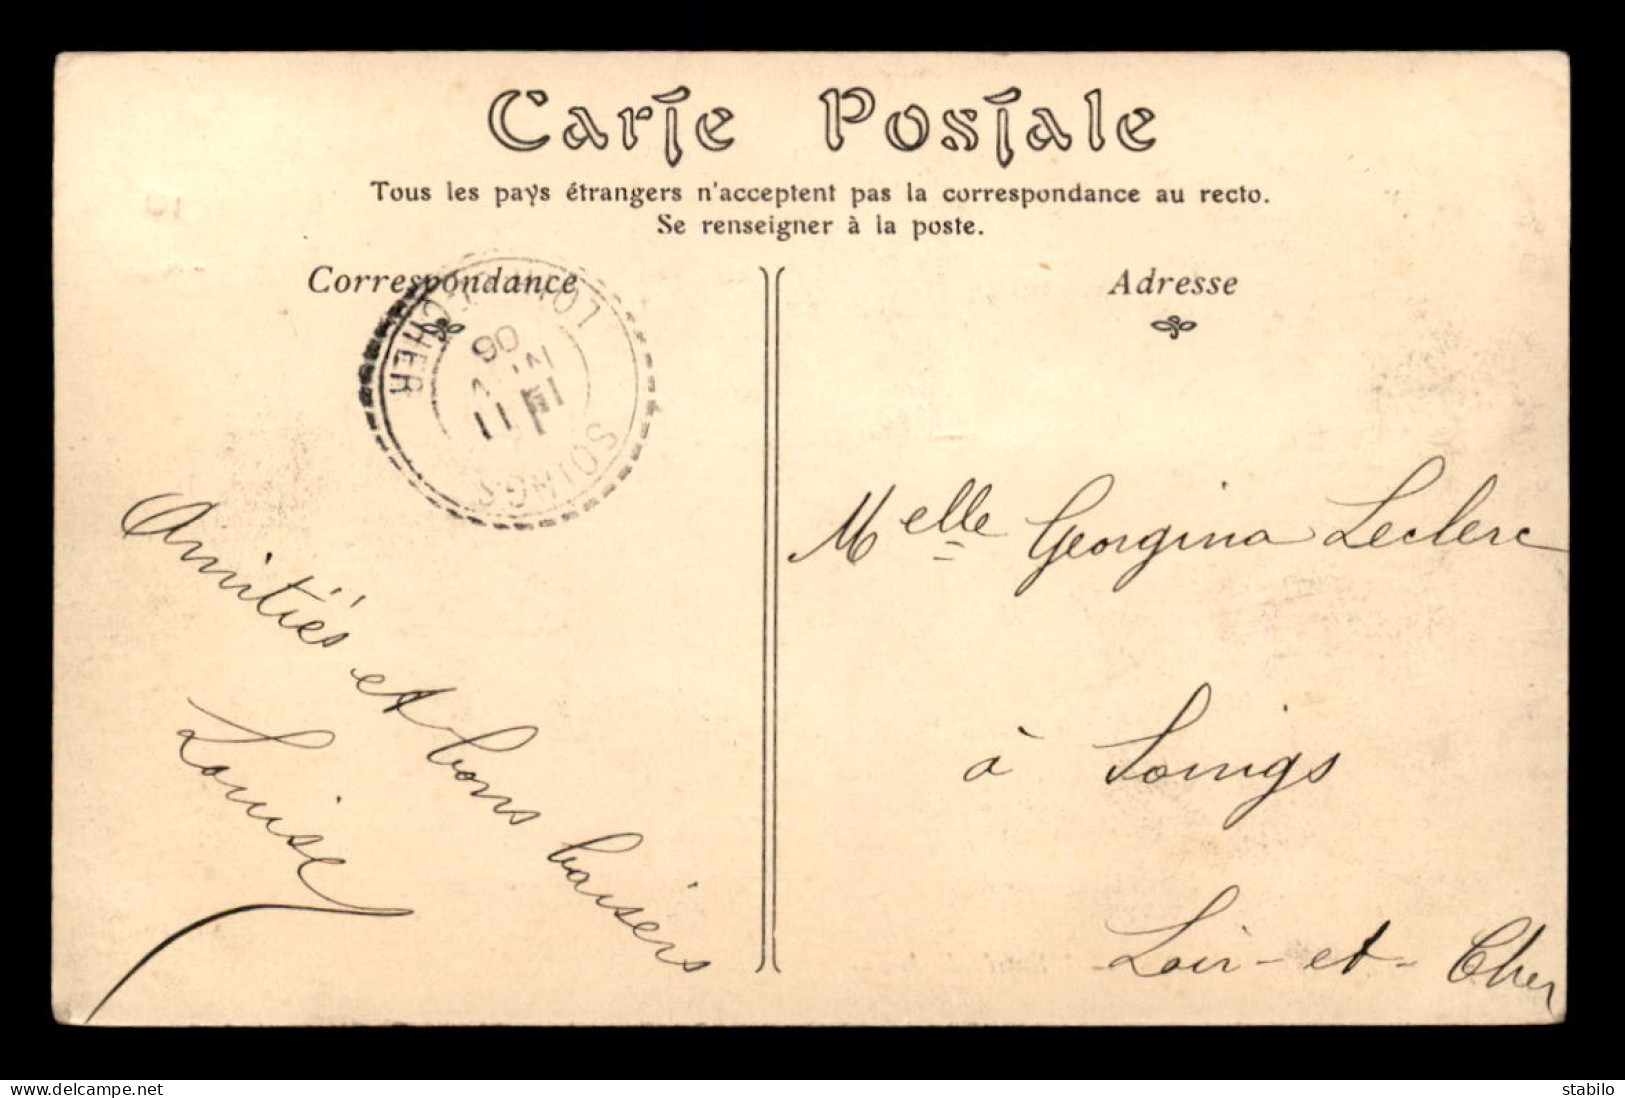 Carte Postale
Tous les pays étrangers n'acceptent pas la correspondance au recto.
Se renseigner à la poste.
Correspondance
Adresse
SOINGS
LOIR CHER
11
06
Amitiés et bons baisers
Louise
Melle Georgina Leclerc
à Soings
Loir-et-Cher
www.delcampe.net
stabilo